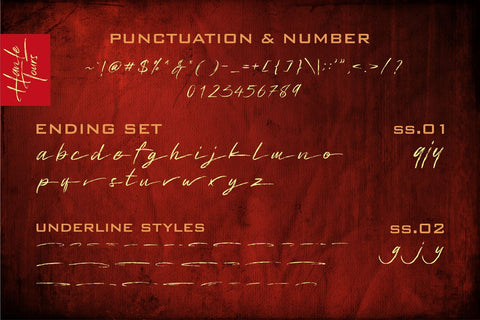 Haute
Tours
PUNCTUATION & NUMBER
~`!@#$%^&*()-_=+[{]}\|;:'",<.>/?
0123456789
ENDING SET
ss.01
abcdefghijklmno
gjy
pqrsturwxyz
UNDERLINE STYLES
ss.02
gjy